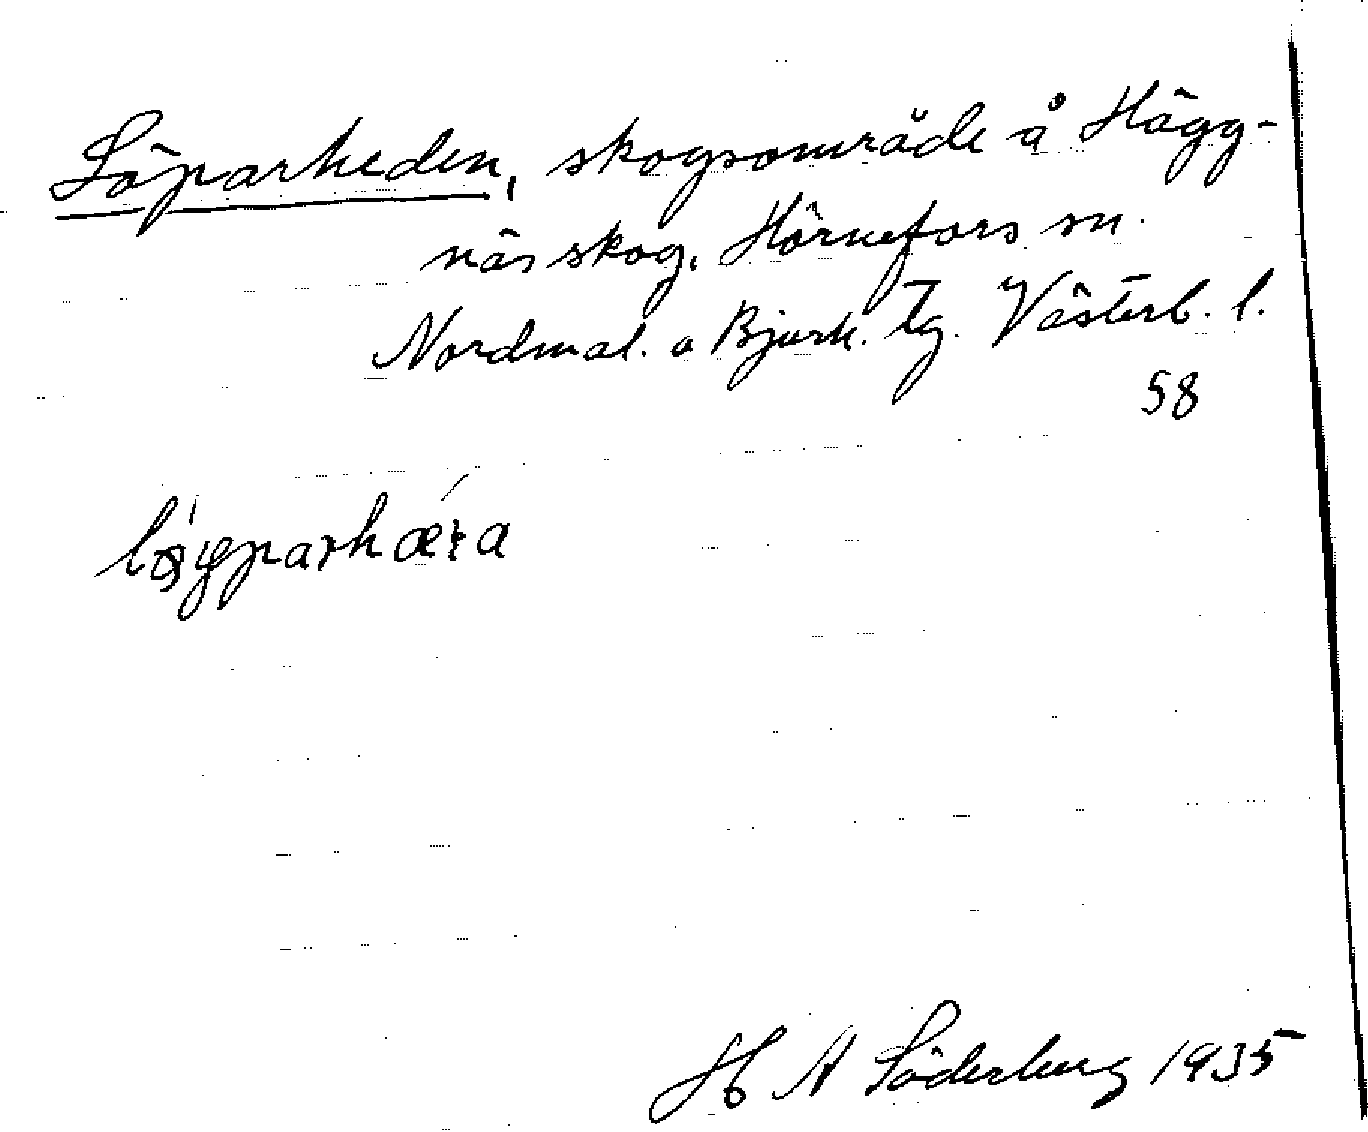 Löparheden, skogsområde å Hägg-
näs skog, Hörnefors sn.
Nordmal. o Bjurh. Tg. Västerb. l.
58
H A Söderberg 1935